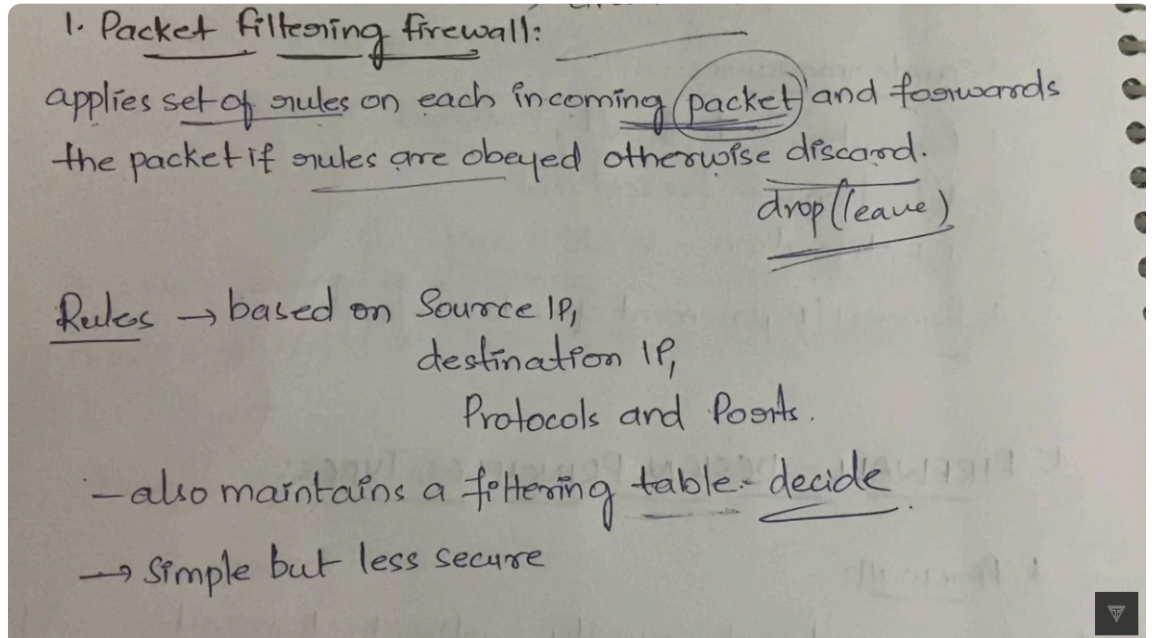 1. Packet filtering firewall:
applies set of rules on each incoming packet and forwards
the packet if rules are obeyed otherwise discard.
drop (leave)
Rules → based on Source IP,
destination IP,
Protocols and Ports.
- also maintains a filtering table - decide
→ Simple but less secure